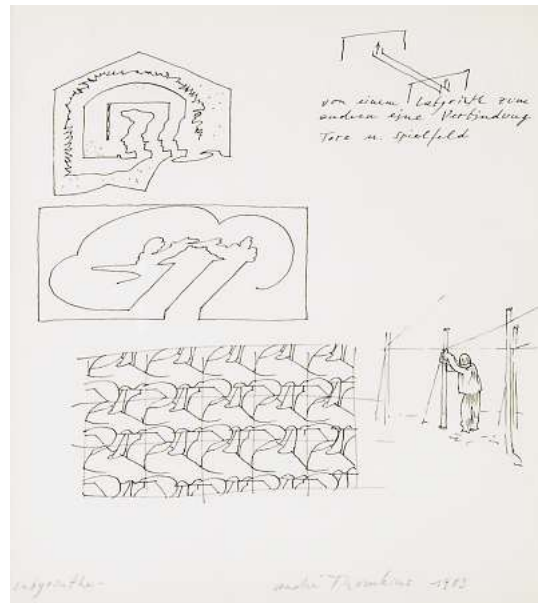 von einem Labyrinth zum
andern eine Verbindung
Tore u. Spielfeld
labyrinthe-
andré Thomkins 1983